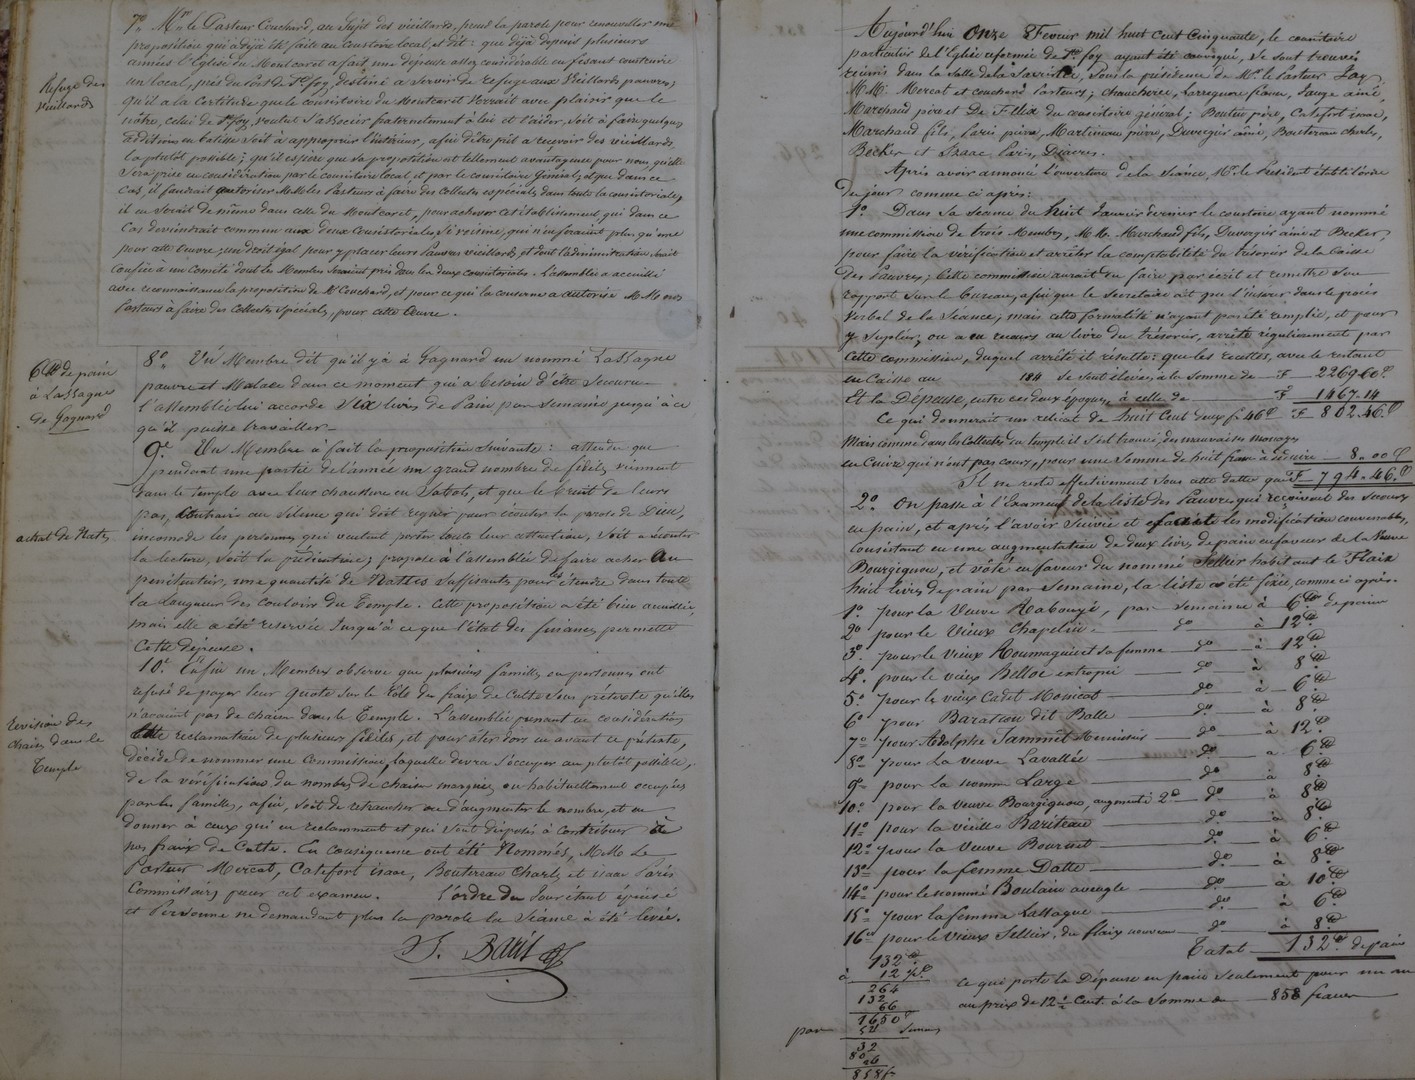 7º Mr. le Pasteur Couchard, au Sujet des vieillards, prend la parole pour renouveller une
proposition qui a déjà été faite au Consistoire local, et dit : que déjà depuis plusieurs
années l'Eglise du Montcaret a fait une dépense assez considérable en fesant construire
un local, près du Port de Ste foy, destiné à Servir de refuge aux Vieillards pauvres;
Refuge des
Vieillards
qu'il a la Certitude que le consistoire du Montcaret verrait avec plaisir que le
nôtre, celui de Ste foy, voulut S'associer fraternellement à lui et l'aider, soit à faire quelques
additions en batisse soit à approprier l'intérieur, afin d'être prêt à recevoir des vieillards
le plutôt possible; qu'il espère que sa proposition est tellement avantageuse pour nous, qu'elle
Sera prise en considération par le consistoire local et par le consistoire Général, et que dans ce
Cas, il faudrait autoriser MM les Pasteurs à faire des Collectes espéciales dans toute la consistoriale,
il en Serait de même dans celle du Montcaret, pour achever cet établissement, qui dans ce
Cas deviendrait commun aux deux Consistoriales qui n'en feraient plus qu'une
pour cette Œuvre; un droit égal pour y placer leurs Pauvres vieillards, et dont l'administration Serait
Confiée à un Comité dont les Membres Seraient pris dans les deux consistoriales. L'assemblée a accueilli
avec reconnaissance la proposition de Mr Couchard, et pour ce qui la concerne a autorisé MM nos
Pasteurs à faire des Collectes Spéciales, pour cette Œuvre.
6 lb de pain
à Lassagne
de Gagnard
8º Un Membre dit qu'il y a à Gagnard un nommé Lassagne
pauvre et Malade dans ce moment qui a besoin d'être Secouru
l'assemblée lui accorde Six livres de Pain par Semaine jusqu'à ce
qu'il puisse travailler
9º Un Membre a fait la proposition Suivante : attendu que
pendant une partie de l'année un grand nombre de fidèles viennent
dans le temple avec leur chaussure en Sabots, et que le bruit de leurs
pas, au Silence qui doit régner pour écouter la parole de Dieu,
achat de Nattes
incomode les personnes qui veulent porter toute leur attention, Soit à écouter
la lecture, Soit la prédication; propose à l'assemblée de faire acheter au
penitentier, une quantité de Nattes Suffisante pour étendre dans toute
la Longueur des Couloirs du Temple. Cette proposition a été bien accueillie,
mais elle a été reservée Jusqu'à ce que l'état des finances permette
Cette dépense.
10º Enfin un Membre observe que plusieurs familles ou personnes ont
refusé de payer leur Quote Sur le Rôle des fraix de Culte Sous prétexte qu'elles
Revision des
Chaises dans le
Temple
n'avaient pas de chaises dans le Temple. L'assemblée prenant en considération
cette reclamation de plusieurs fidèles, et pour ôter dors en avant ce prétexte,
décide de nommer une Commission, laquelle devra S'occuper au plutôt possible,
de la vérification du nombre de chaises marquées, ou habituellement occupées
par les familles, afin, Soit de retrancher ou d'augmenter le nombre, et en
donner à ceux qui en reclamment et qui Sont disposés à Contribuer à
nos fraix de Culte. En Conséquence ont été Nommés, M.M. Le
Pasteur Mercat, Catefort isaac, Boutereau Charles et isaac Paris
Commissaires pour cet examen. l'ordre du Jour étant épuisé
et Personne ne demandant plus la parole la Séance a été levée.
Aujourd'hui Onze Février mil huit Cent Cinquante, le consistoire
particulier de l'Eglise réformée de Ste foy ayant été convoqué, Se Sont trouvés
réunis dans la Salle de la Sacristie, Sous la présidence de Mr. le Pasteur
M.M. Mercat et couchard Pasteurs; Chaucherie, Larregnere franc, aîné,
Marchand père et De Fellix du consistoire général; père, Catefort isaac,
Marchand fils, Paris pierre, Martineau pierre, Duvergier ainé, Boutereau Charles,
Becker et Isaac Paris, Diacres.
Après avoir annoncé l'ouverture de la Séance, Mr. le Président établit l'ordre
Du jour comme ci après :
1º Dans Sa Séance du huit Janvier dernier le consistoire ayant nommé
une commission de trois Membres, M.M. Marchand fils, Duvergier ainé et Becker,
pour faire la vérification et arrêter la comptabilité du trésorier de la Caisse
Des Pauvres; Cette commission aurait du faire par écrit et remettre Son
rapport Sur le bureau, afin que le Secretaire ait pu l'insérer dans le procès
Verbal de la Séance; mais cette formalité n'ayant pas été remplie, et pour
y Supléer, on a eu recours au livre du trésorier, arrêté régulièrement par
Cette commission, duquel arrêté il résulte : que les recettes, avec le restant
en Caisse au 184 Se Sont élevées à la Somme de F 2269.60c
Et la Dépense, entre ces deux époques, à celle de F 1467.14
Ce qui donnerait un reliçat de huit Cent deux f. 46c F 802.46c
Mais comme dans les Collectes du temple il S'est trouvé, des mauvaises monayes
en Cuivre qui n'ont pas cours, pour une Somme de huit francs à déduire 8.00c
Il ne reste effectivement Sous cette datte que F 794.46c
2º On passe à l'Examen de la liste des Pauvres qui reçoivent des secours
en pain, et après l'avoir Suivie et les modification convenables,
Consistant en une augmentation de deux livres de pain en faveur de la Veuve
Bourgignon, et voté en faveur du nommé Sellier habitant le Flaix
huit livres de pain par Semaine, la liste a été fixée, comme ci après.
1º pour la Veuve Rabouyé, par Semaine à 6 lb de pain
2º pour le Vieux Chapelin dº à 12 lb
3º pour le vieux Roumaguiet sa femme dº à 12 lb
4º pour le vieux Belloc estropié dº à 8 lb
5º pour le vieux Cadet Monicat dº à 6 lb
6º pour Baratou dit Balle dº à 8 lb
7º pour Adolphe Jammit Menuisier dº à 12 lb
8º pour La veuve Lavallée dº à 6 lb
9º pour la nommé Large dº à 8 lb
10º pour la veuve Bourgignon, augmenté 2 lb dº à 8 lb
11º pour la vieille Bariteau dº à 8 lb
12º pour la Veuve Bournet dº à 6 lb
13º pour la femme Datte dº à 8 lb
14º pour le nommé Boulain aveugle dº à 10 lb
15º pour la femme Lassagne dº à 6 lb
16º pour le Vieux Sellier, du flaix nouveau dº à 8 lb
Total 132 lb de pain
132 lb
à 12 ½c
264
132
66
1650
par 52 Semaines
32
80
26
858 f
ce qui porte la Dépense en pain Seulement pour un an
au prix de 12 ½ Cent. à la Somme de 858 francs